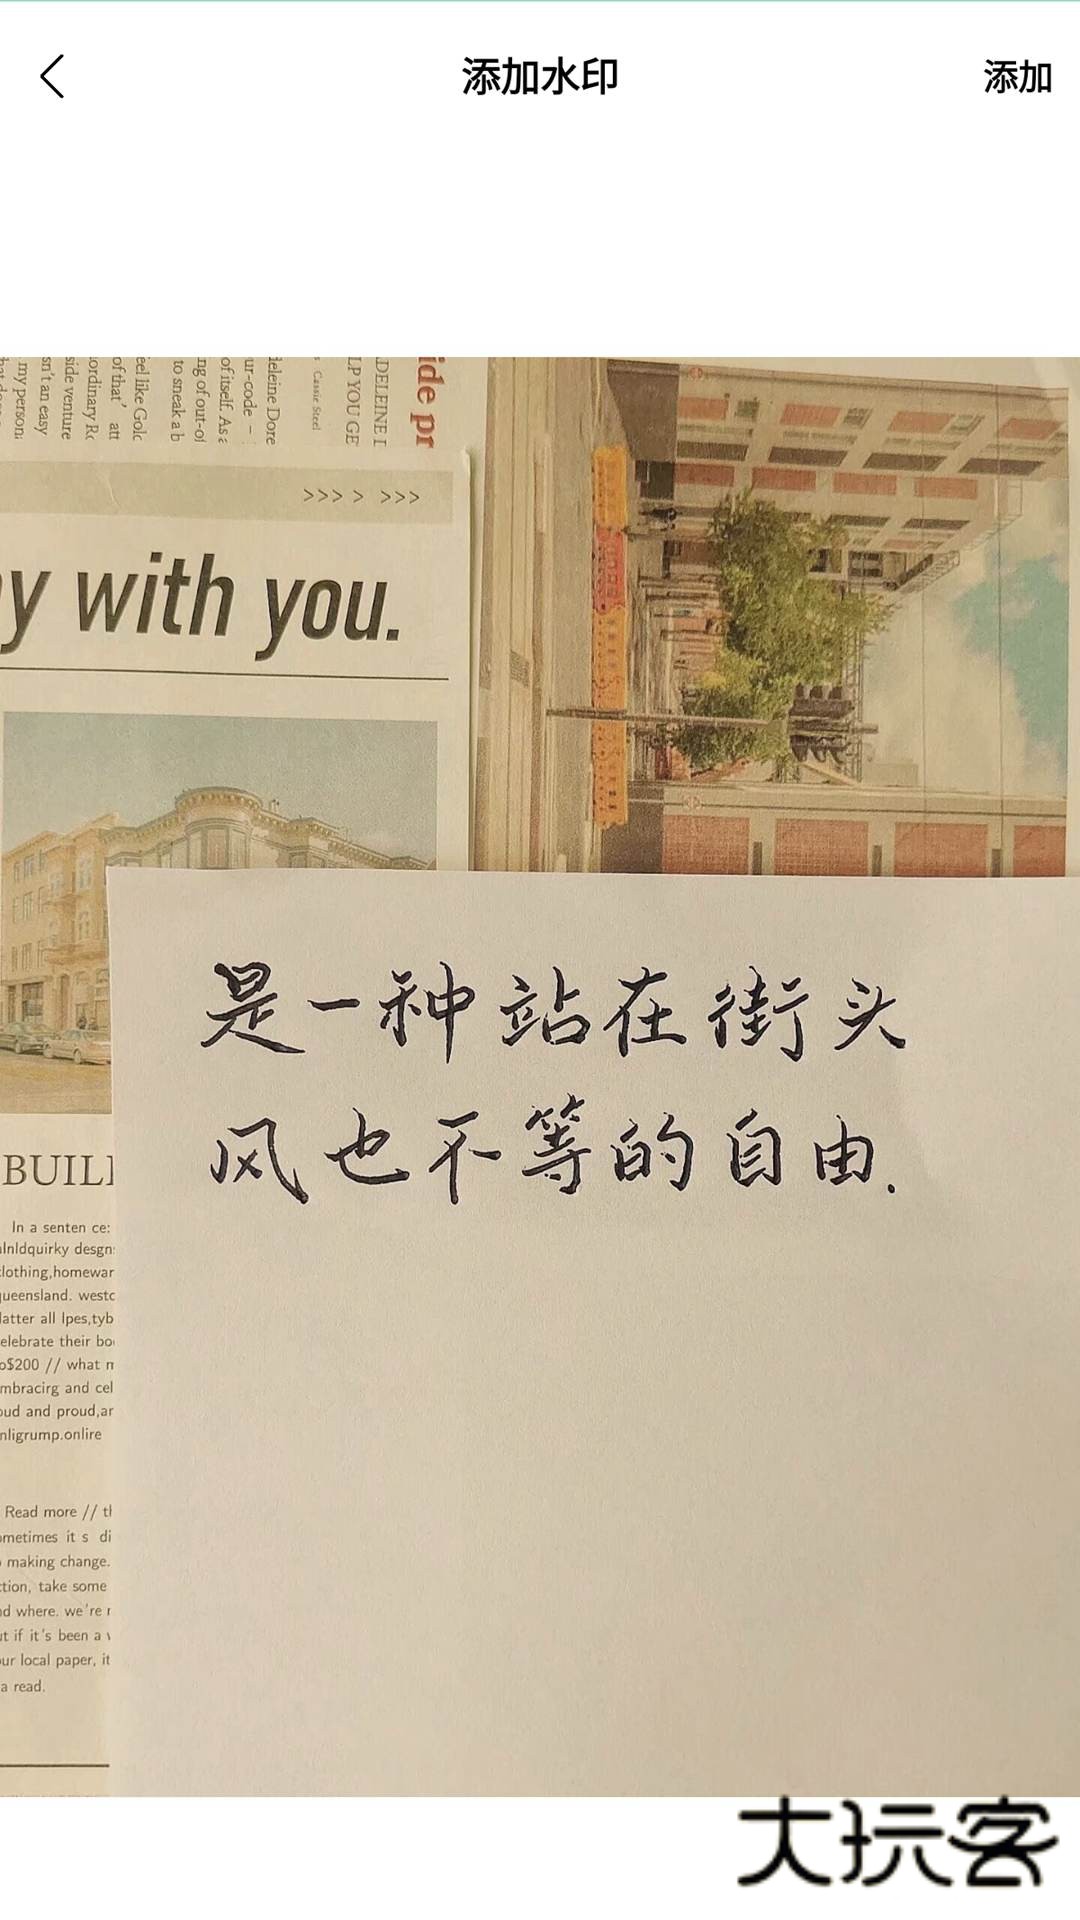 添加水印
添加
ide pr
DELEINE D
LP YOU GE
Cassie Steel
deleine Dore
ur-code –
of itself. As a
ng of out-of
to sneak a b
eel like Golc
of that' att
ordinary Ro
side venture
sn't an easy
my person
>>> > >>>
y with you.
BUIL
In a senten ce:
lnldquirky desgn
lothing,homewar
ueensland. westc
latter all lpes,tyb
elebrate their bo
o$200 // what m
mbracirg and cel
oud and proud,ar
nligrump.onlire
Read more // th
ometimes it s di
making change.
ction, take some
nd where. we're r
ut if it's been a
our local paper, it
a read.
是一种站在街头
风也不等的自由.
大玩客